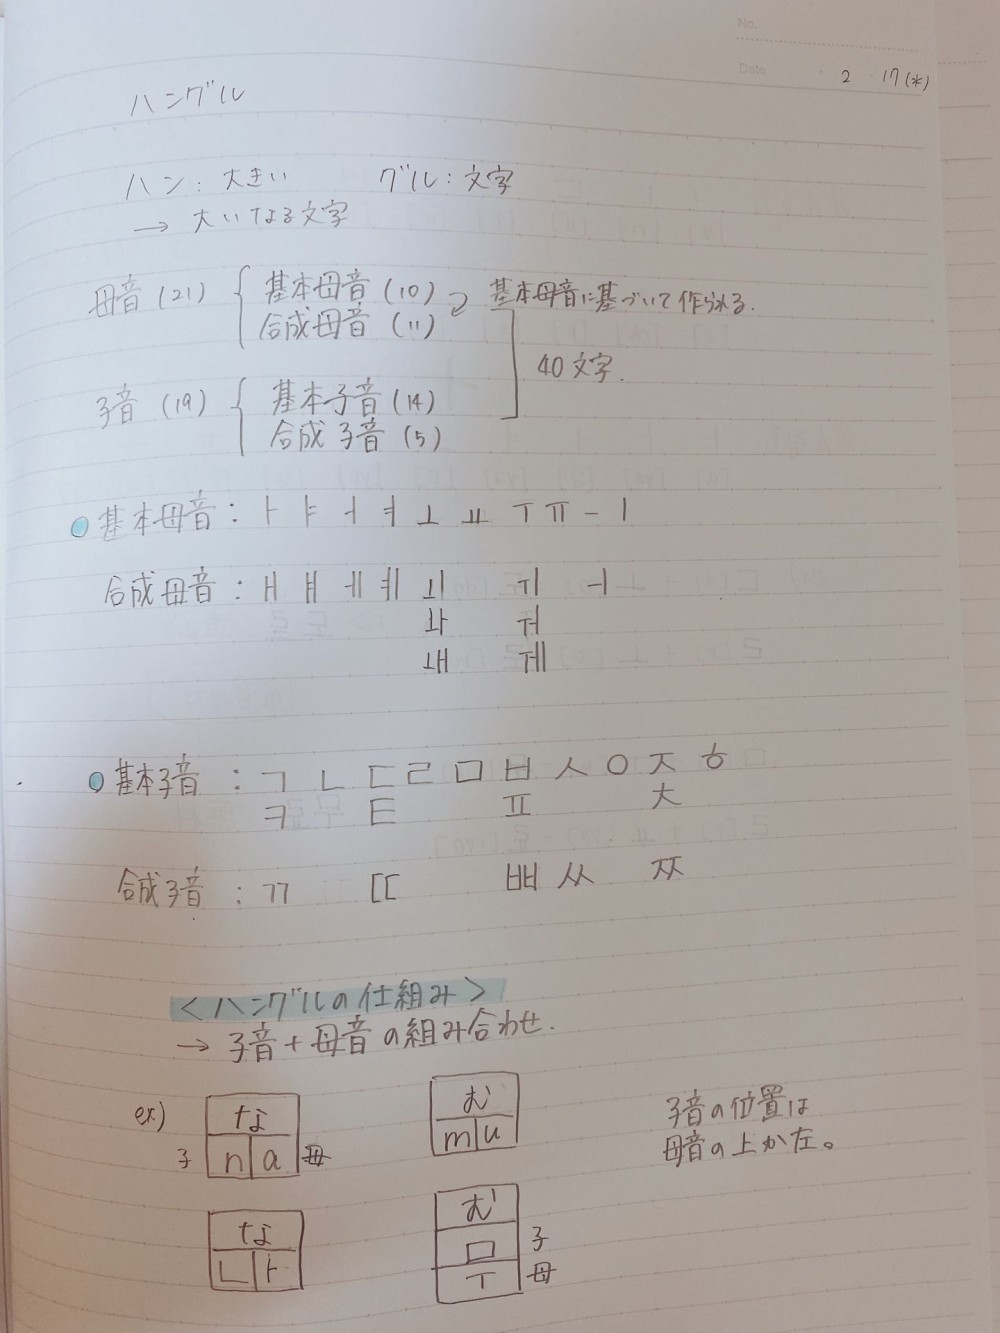 No.
Date 2 · 17(水)
ハングル
ハン：大きい　グル：文字
→ 大いなる文字
母音 (21) { 基本母音 (10) 基本母音に基づいて作られる.
合成母音 (11)
40文字.
子音 (19) { 基本子音 (14)
合成子音 (5)
基本母音：ㅏ ㅑ ㅓ ㅕ ㅗ ㅛ ㅜ ㅠ ㅡ ㅣ
合成母音：ㅐ ㅒ ㅔ ㅖ ㅚ ㅟ ㅢ
ㅘ ㅝ
ㅙ ㅞ
基本子音：ㄱ ㄴ ㄷ ㄹ ㅁ ㅂ ㅅ ㅇ ㅈ ㅎ
ㅋ ㅌ ㅍ ㅊ
合成子音：ㄲ ㄸ ㅃ ㅆ ㅉ
＜ハングルの仕組み＞
→ 子音＋母音の組み合わせ.
ex) な む
子 n a 母 m u
子音の位置は
母音の上か左。
な む
ㄴ ㅏ ㅁ 子
ㅜ 母